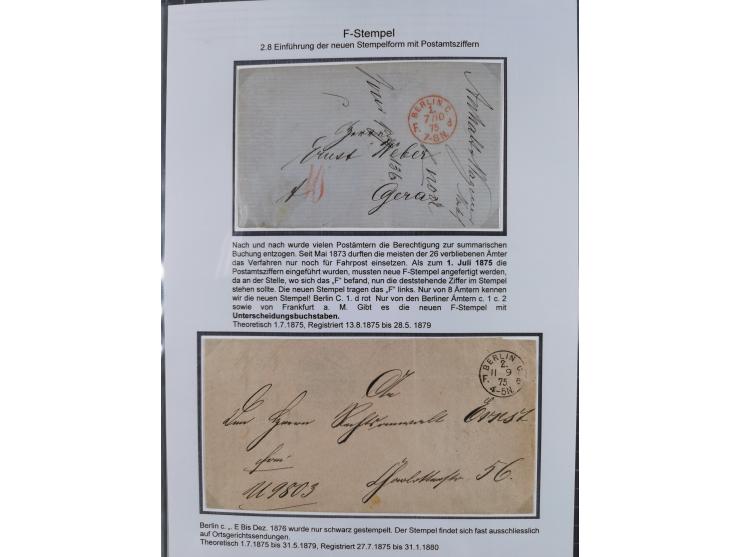 F-Stempel
2.8 Einführung der neuen Stempelform mit Postamtsziffern
BERLIN C.
2.
7/10
F. 75 d
7-8N.
Ernst Weber
Gera
Nach und nach wurde vielen Postämtern die Berechtigung zur summarischen
Buchung entzogen. Seit Mai 1873 durften die meisten der 26 verbliebenen Ämter
das Verfahren nur noch für Fahrpost einsetzen. Als zum 1. Juli 1875 die
Postamtsziffern eingeführt wurden, mussten neue F-Stempel angefertigt werden,
da an der Stelle, wo sich das „F" befand, nun die deststehende Ziffer im Stempel
stehen sollte. Die neuen Stempel tragen das „F" links. Nur von 8 Ämtern kennen
wir die neuen Stempel! Berlin C. 1. d rot Nur von den Berliner Ämtern c. 1 c. 2
sowie von Frankfurt a. M. Gibt es die neuen F-Stempel mit
Unterscheidungsbuchstaben.
Theoretisch 1.7.1875, Registriert 13.8.1875 bis 28.5. 1879
BERLIN C.
2.
11 9
F. 75
4-5N.
An
Den Herrn Rechtsanwalt Ernst
frei
Charlottenstr 56.
U 9803
Berlin c. „. E Bis Dez. 1876 wurde nur schwarz gestempelt. Der Stempel findet sich fast ausschliesslich
auf Ortsgerichtssendungen.
Theoretisch 1.7.1875 bis 31.5.1879, Registriert 27.7.1875 bis 31.1.1880